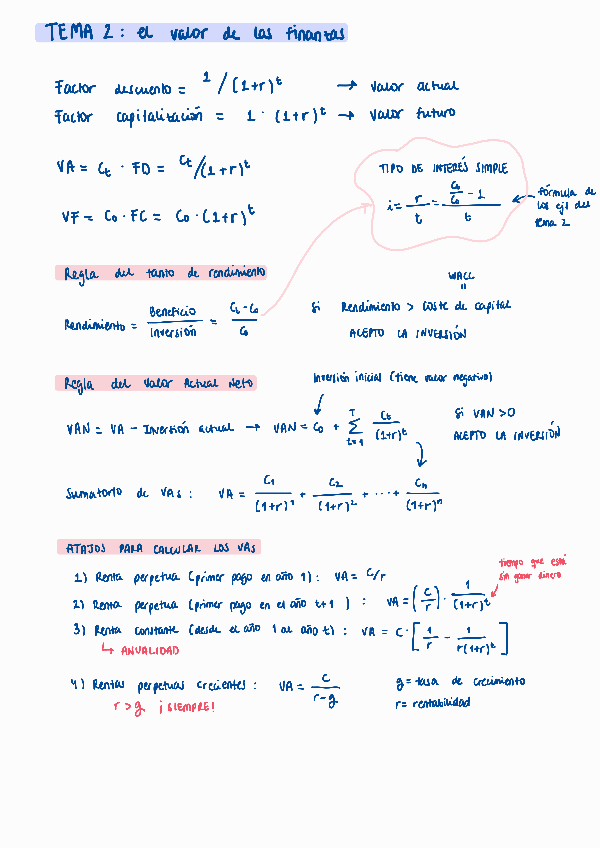 TEMA 2: el valor de las finanzas
Factor descuento = 1 / (1+r)^t → valor actual
Factor capitalización = 1 · (1+r)^t → valor futuro
VA = Ct · FD = Ct/(1+r)^t
TIPO DE INTERÉS SIMPLE
i = r/t = (Ct/C0 - 1)/t
fórmula de
los ejs del
tema 2
VF = C0 · FC = C0 · (1+r)^t
Regla del tanto de rendimiento
WACC
=
Rendimiento = Beneficio/Inversión = (Ct - C0)/C0
Si Rendimiento > coste de capital
ACEPTO LA INVERSIÓN
Regla del Valor Actual Neto
Inversión inicial (tiene valor negativo)
VAN = VA - Inversión actual → VAN = C0 + Σ t=1 T Ct/(1+r)^t
Si VAN > 0
ACEPTO LA INVERSIÓN
Sumatorio de VAs: VA = C1/(1+r)^1 + C2/(1+r)^2 + ... + Cn/(1+r)^n
ATAJOS PARA CALCULAR LOS VAs
tiempo que está
sin ganar dinero
1) Renta perpetua (primer pago en año 1): VA = C/r
2) Renta perpetua (primer pago en el año t+1): VA = (C/r) · 1/(1+r)^t
3) Renta constante (desde el año 1 al año t): VA = C · [1/r - 1/r(1+r)^t]
↳ ANUALIDAD
4) Rentas perpetuas crecientes: VA = C/(r-g)
g = tasa de crecimiento
r > g ¡SIEMPRE!
r = rentabilidad